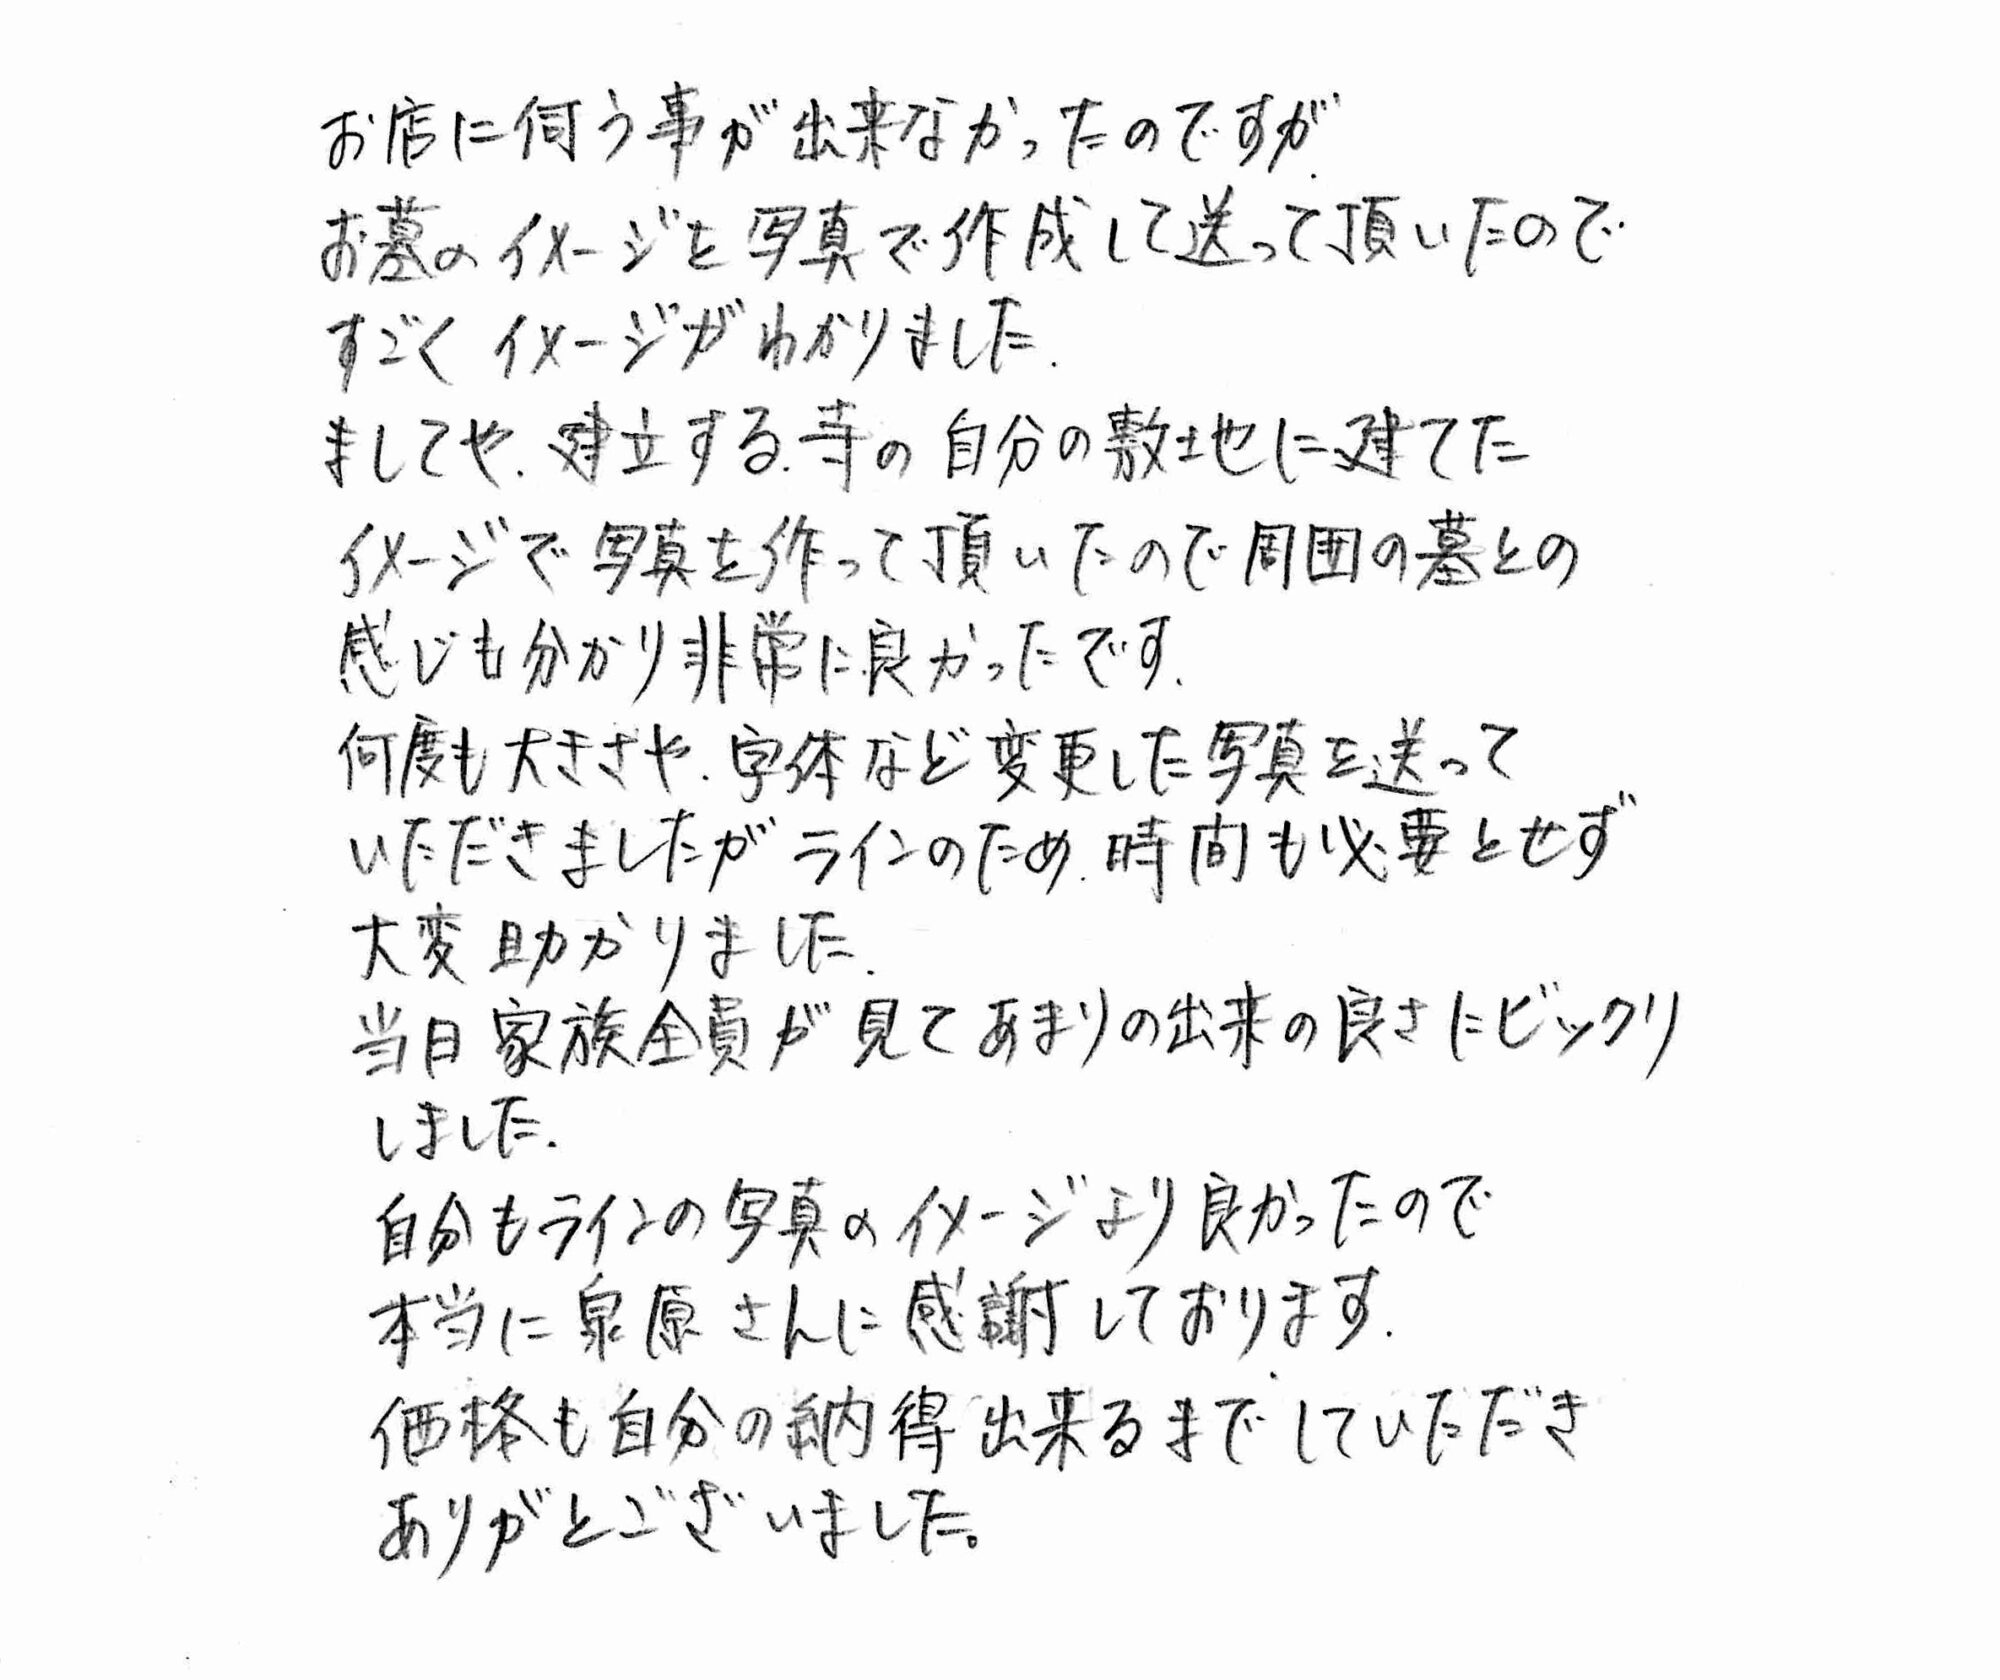 お店に伺う事が出来なかったのですが、
お墓のイメージを写真で作成して送って頂いたので
すごくイメージがわかりました。
ましてや、建立する、寺の自分の敷地に建てた
イメージで写真を作って頂いたので周囲の墓との
感じも分かり非常に良かったです。
何度も大きさや、字体など変更した写真を送って
いただきましたがラインのため、時間も必要とせず
大変助かりました。
当日家族全員が見てあまりの出来の良さにビックリ
しました。
自分もラインの写真のイメージより良かったので
本当に泉原さんに感謝しております。
価格も自分の納得出来るまでしていただき
ありがとございました。